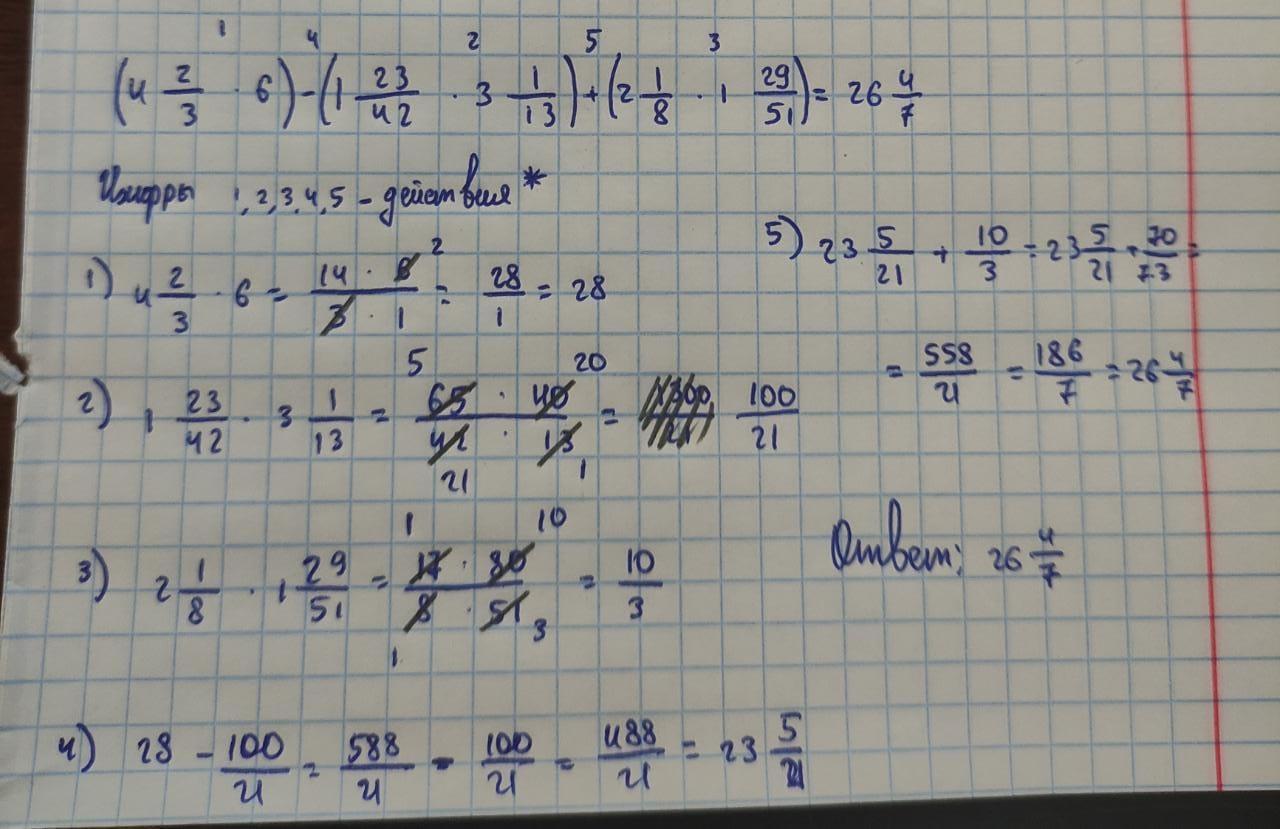 1 4 2 5 3
(4 2/3 · 6) - (1 23/42 · 3 1/13) + (2 1/8 · 1 29/51) = 26 4/7
Цифры 1,2,3,4,5 - действия*
1) 4 2/3 · 6 = 14 · 6 2 / 3 · 1 = 28/1 = 28
2) 1 23/42 · 3 1/13 = 65 5 · 40 20 / 42 21 · 13 1 = 100/21
3) 2 1/8 · 1 29/51 = 17 1 · 80 10 / 8 1 · 51 3 = 10/3
4) 28 - 100/21 = 588/21 - 100/21 = 488/21 = 23 5/21
5) 23 5/21 + 10/3 = 23 5/21 + 70/73 =
= 558/21 = 186/7 = 26 4/7
Ответ: 26 4/7